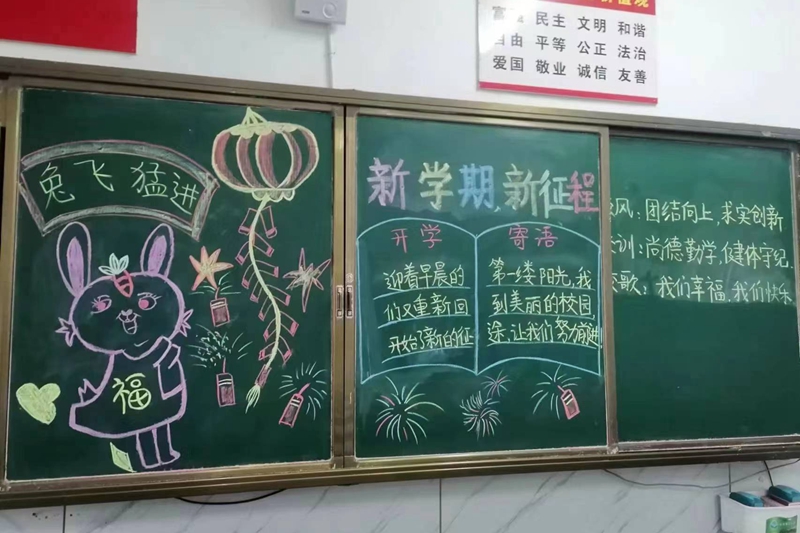 民主 文明 和谐
自由 平等 公正 法治
爱国 敬业 诚信 友善
兔飞猛进
福
新学期,新征程
开学 寄语
迎着早晨的第一缕阳光,我
们又重新回到美丽的校园,
开始了新的征途,让我们努力前进
风:团结向上,求实创新
训:尚德勤学,健体守纪
歌:我们幸福,我们快乐